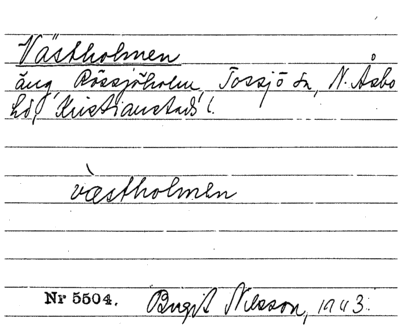 Västholmen
äng Rössjöholm, Tossjö sn, N. Åsbo
hd, Kristianstads l.
væstholmen
Nr 5504. Birgit Nilsson, 1943.